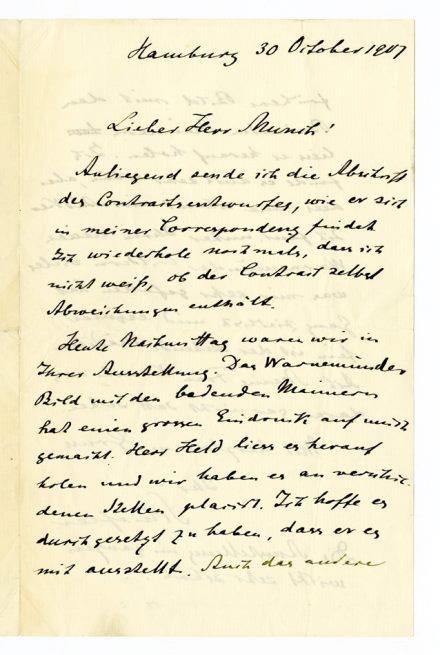 Hamburg 30 October 1907
Lieber Herr Munch!
Anliegend sende ich die Abschrift
des Contractsentwurfes, wie er sich
in meiner Correspondenz findet
Ich wiederhole nochmals, dass ich
nicht weiß, ob der Contract selbst
Abweichungen enthält.
Heute Nachmittag waren wir in
Ihrer Ausstellung. Das Warnemünder
Bild mit den badenden Männern
hat einen grossen Eindruck auf mich
gemacht. Herr Held liess es herauf
holen und wir haben es an verschie-
denen Stellen placirt. Ich hoffe es
durchgesetzt zu haben, dass er es
mit ausstellt. Auch das andere